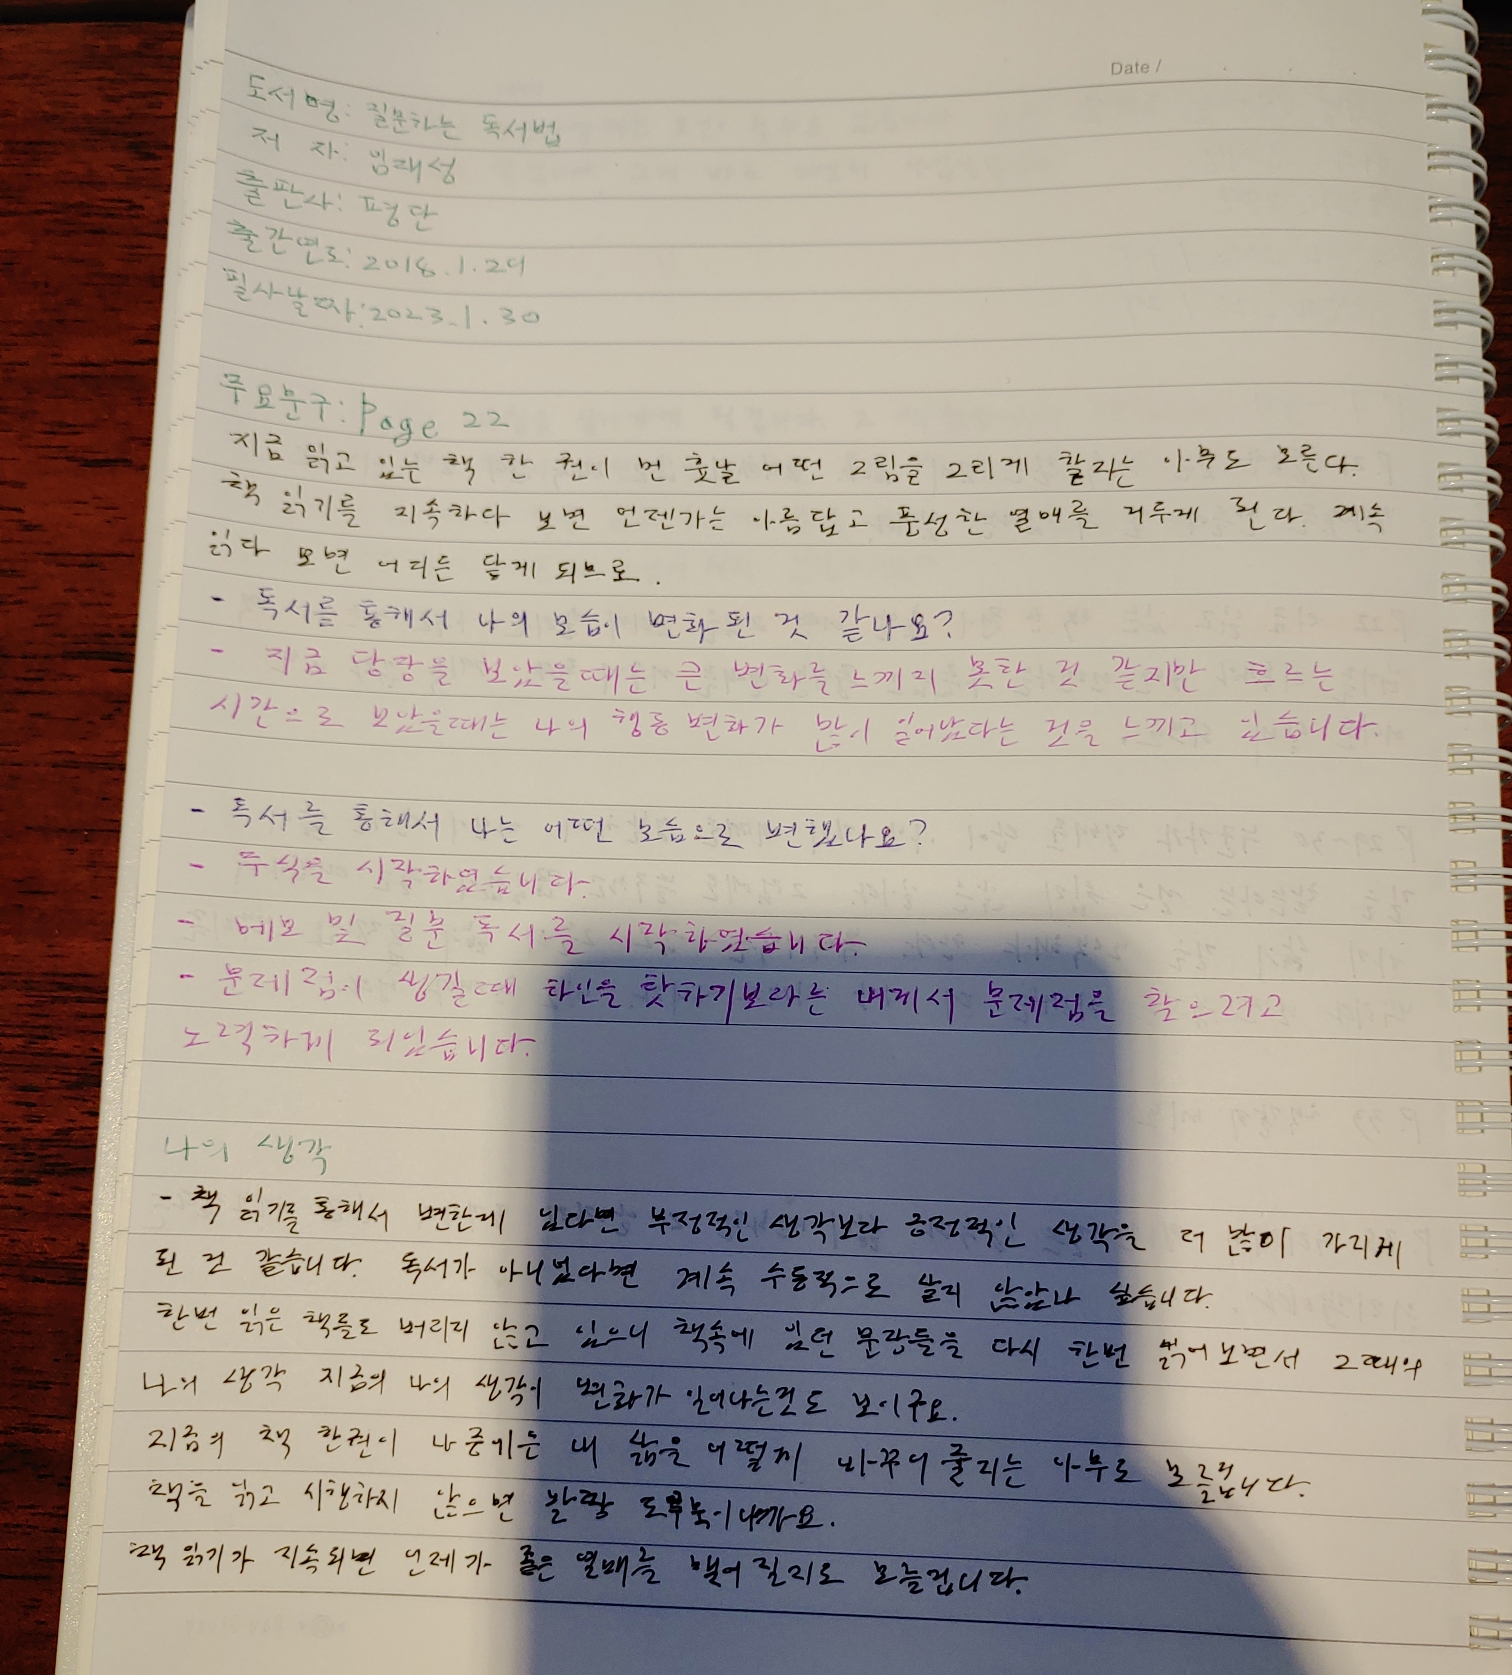 Date /
도서명: 질문하는 독서법
저 자: 임재성
출판사: 평단
출간연도: 2018.1.29
필사날짜: 2023.1.30
주요문구: Page 22
지금 읽고 있는 책 한 권이 먼 훗날 어떤 그림을 그리게 할지는 아무도 모른다.
책 읽기를 지속하다 보면 언젠가는 아름답고 풍성한 열매를 거두게 된다. 계속
읽다 보면 어디든 닿게 되므로.
- 독서를 통해서 나의 모습이 변화된 것 같나요?
- 지금 당장을 보았을때는 큰 변화를 느끼지 못한 것 같지만 흐르는
시간으로 보았을때는 나의 행동변화가 많이 일어났다는 것을 느끼고 있습니다.
- 독서를 통해서 나는 어떤 모습으로 변했나요?
- 주식을 시작하였습니다.
- 메모 및 질문 독서를 시작하였습니다.
- 문제점이 생길때 타인을 탓하기보다는 내게서 문제점을 찾으려고
노력하게 되었습니다.
나의 생각
- 책 읽기를 통해서 변한게 있다면 부정적인 생각보다 긍정적인 생각을 더 많이 가지게
된 건 같습니다. 독서가 아니였다면 계속 수동적으로 살지 않았나 싶습니다.
한번 읽은 책들도 버리지 않고 있으니 책속에 있던 문장들을 다시 한번 읽어보면서 그때의
나의 생각 지금의 나의 생각이 변화가 일어나는것도 보이구요.
지금의 책 한권이 나중에는 내 삶을 어떻게 바꾸어줄지는 아무도 모를겁니다.
책을 읽고 시행하지 않으면 말짱 도루묵이니까요.
책 읽기가 지속되면 언제가 좋은 열매를 맺어질지도 모를겁니다.